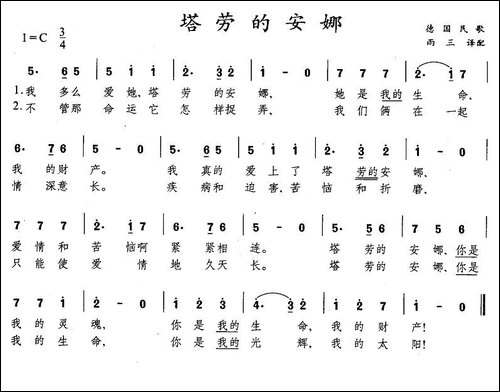 塔劳的安娜
1=C 3/4
德国民歌
雨三译配
5· 65 1̇1̇1̇ 2̇· 3̇2̇ 1̇-0 5·65 1̇1̇1̇ 2̇·1̇7
1.我多么爱她,塔劳的安娜,她是我的生命,
2.不管那命运它怎样捉弄,我们俩在一起
6·76 5-0 5·65 1̇1̇1̇ 2̇·3̇2̇ 1̇-0
我的财产。我真的爱上了塔劳的安娜,
情深意长。疾病和迫害,苦恼和折磨,
777 2̇·1̇7 6·76 5-0 5·56 756
爱情和苦恼啊紧紧相连。塔劳的安娜、你是
只能使爱情地久天长。塔劳的安娜、你是
771̇ 2̇-0 1̇2̇3̇ 4̇·3̇2̇ 1̇2̇7 1̇-0
我的灵魂,你是我的生命,我的财产!
我的生命,你是我的光辉,我的太阳!